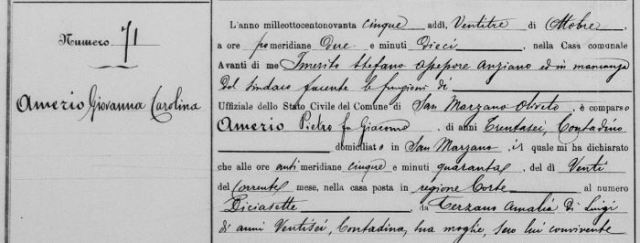 Numero 71
Amerio Giovanna Carolina
L'anno milleottocentonovanta cinque addì, Ventitre di Ottobre
a ore pomeridiane Due e minuti Dieci, nella Casa comunale
Avanti di me Imerito Stefano Assessore Anziano ed in mancanza
Del Sindaco facente le funzioni di
Uffiziale dello Stato Civile del Comune di San Marzano Oliveto, è comparso
Amerio Pietro fu Giacomo di anni Trentasei, Contadino
domiciliato in San Marzano, il quale mi ha dichiarato
che alle ore antimeridiane cinque e minuti quaranta, del dì Venti
del corrente mese, nella casa posta in regione Corte al numero
Diciasette, da Terzano Amalia di Luigi
di anni Ventisei, Contadina, sua moglie, seco lui convivente